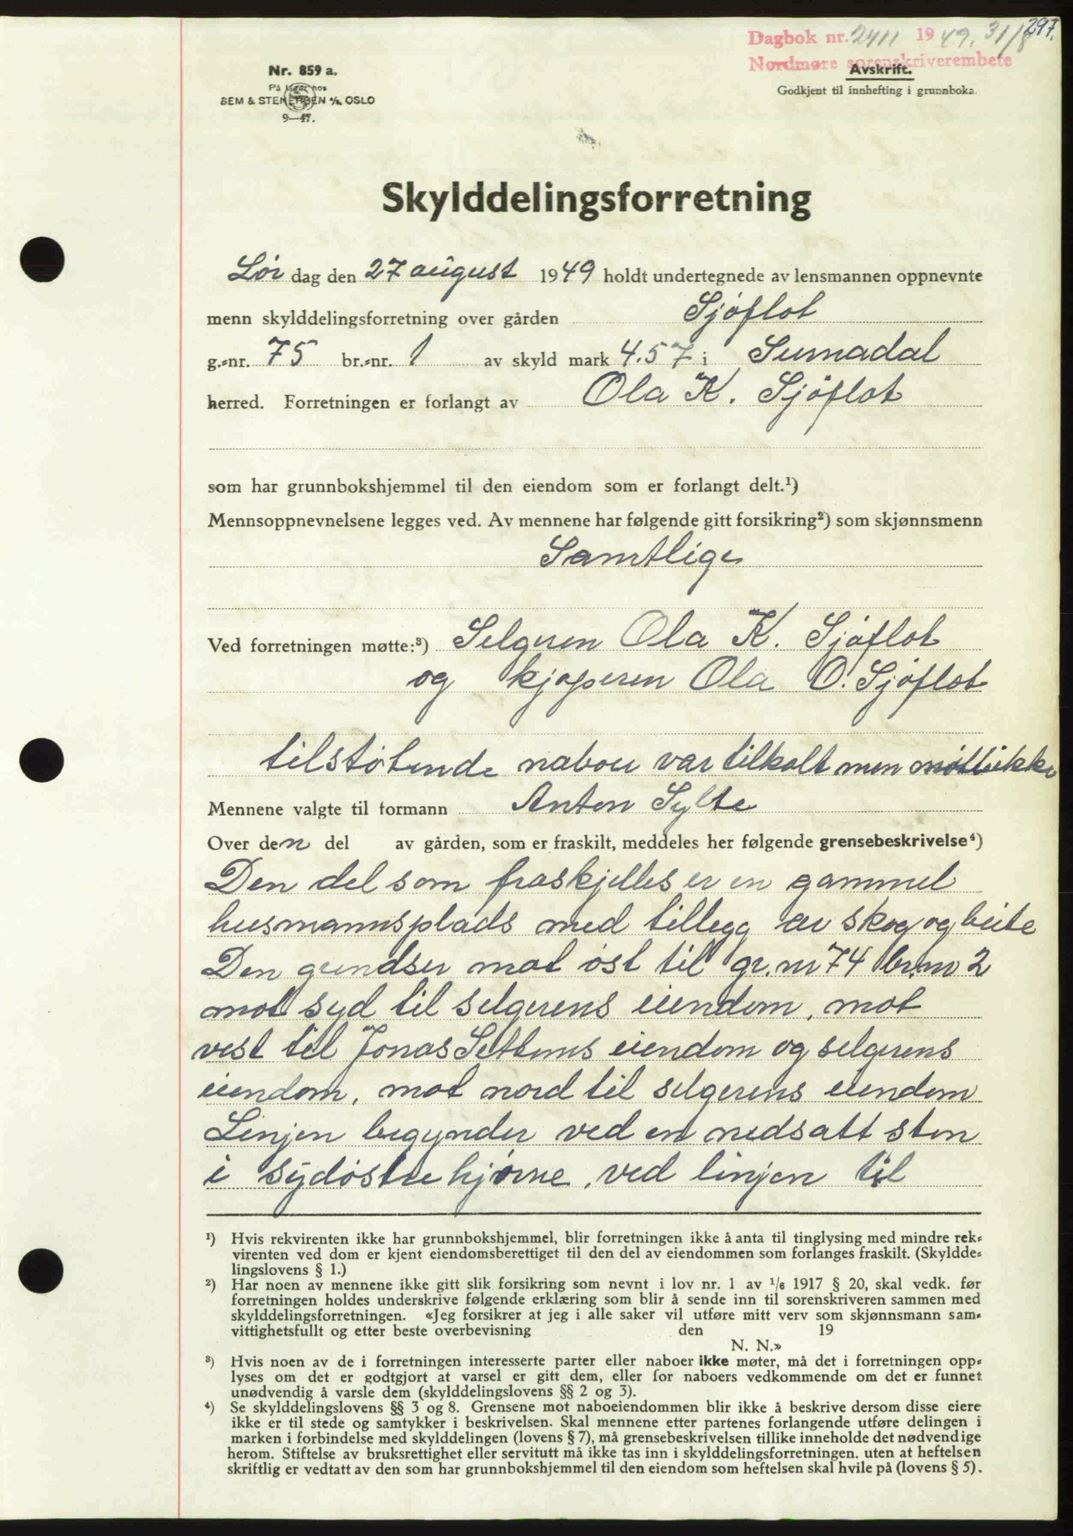 297.
Dagbok nr. 2411 1949. 31/8
Nordmøre sorenskriverembete
Nr. 859 a.
På lager hos
SEM & STENERSEN A/S, OSLO
9—47.
Avskrift.
Godkjent til innhefting i grunnboka.
Skylddelingsforretning
Lør dag den 27 august 1949 holdt undertegnede av lensmannen oppnevnte
menn skylddelingsforretning over gården Sjøflot
g.-nr. 75 br.-nr. 1 av skyld mark 4.57 i Surnadal
herred. Forretningen er forlangt av Ola K. Sjøflot
som har grunnbokshjemmel til den eiendom som er forlangt delt.¹)
Mennsoppnevnelsene legges ved. Av mennene har følgende gitt forsikring²) som skjønnsmenn
Samtlige
Ved forretningen møtte:³) Selgeren Ola K. Sjøflot
og kjøperen Ola O. Sjøflot
tilstøtende nabou var tilkalt men møtte ikke
Mennene valgte til formann Anton Sylte
Over den del av gården, som er fraskilt, meddeles her følgende grensebeskrivelse⁴)
Den del som fraskjelles er en gammel
husmannsplads med tillegg av skog og beite
Den grendser mot øst til gr.nr 74 br.nr 2
mot syd til selgerens eiendom, mot
vest til Jonas Settems eiendom og selgerens
eiendom, mot nord til selgerens eiendom
Linjen begynder ved en nedsatt sten
i sydøstre hjørne, ved linjen til
¹) Hvis rekvirenten ikke har grunnbokshjemmel, blir forretningen ikke å anta til tinglysing med mindre rek-
virenten ved dom er kjent eiendomsberettiget til den del av eiendommen som forlanges fraskilt. (Skyldde-
lingslovens § 1.)
²) Har noen av mennene ikke gitt slik forsikring som nevnt i lov nr. 1 av 1/6 1917 § 20, skal vedk. før
forretningen holdes underskrive følgende erklæring som blir å sende inn til sorenskriveren sammen med
skylddelingsforretningen. «Jeg forsikrer at jeg i alle saker vil utføre mitt verv som skjønnsmann sam-
vittighetsfullt og etter beste overbevisning den 19
N. N.»
³) Hvis noen av de i forretningen interesserte parter eller naboer ikke møter, må det i forretningen opp-
lyses om det er godtgjort at varsel er gitt dem, eller for naboers vedkommende om det er funnet
unødvendig å varsle dem (skylddelingslovens §§ 2 og 3).
⁴) Se skylddelingslovens §§ 3 og 8. Grensene mot naboeiendommen blir ikke å beskrive dersom disse eiere
ikke er til stede og samtykker i beskrivelsen. Skal mennene etter partenes forlangende utføre delingen i
marken i forbindelse med skylddelingen (lovens § 7), må grensebeskrivelsen tillike inneholde det nødvendige
herom. Stiftelse av bruksrettighet eller servitutt må ikke tas inn i skylddelingsforretningen, uten at heftelsen
skriftlig er vedtatt av den som har grunnbokshjemmel til den eiendom som heftelsen skal hvile på (lovens § 5).